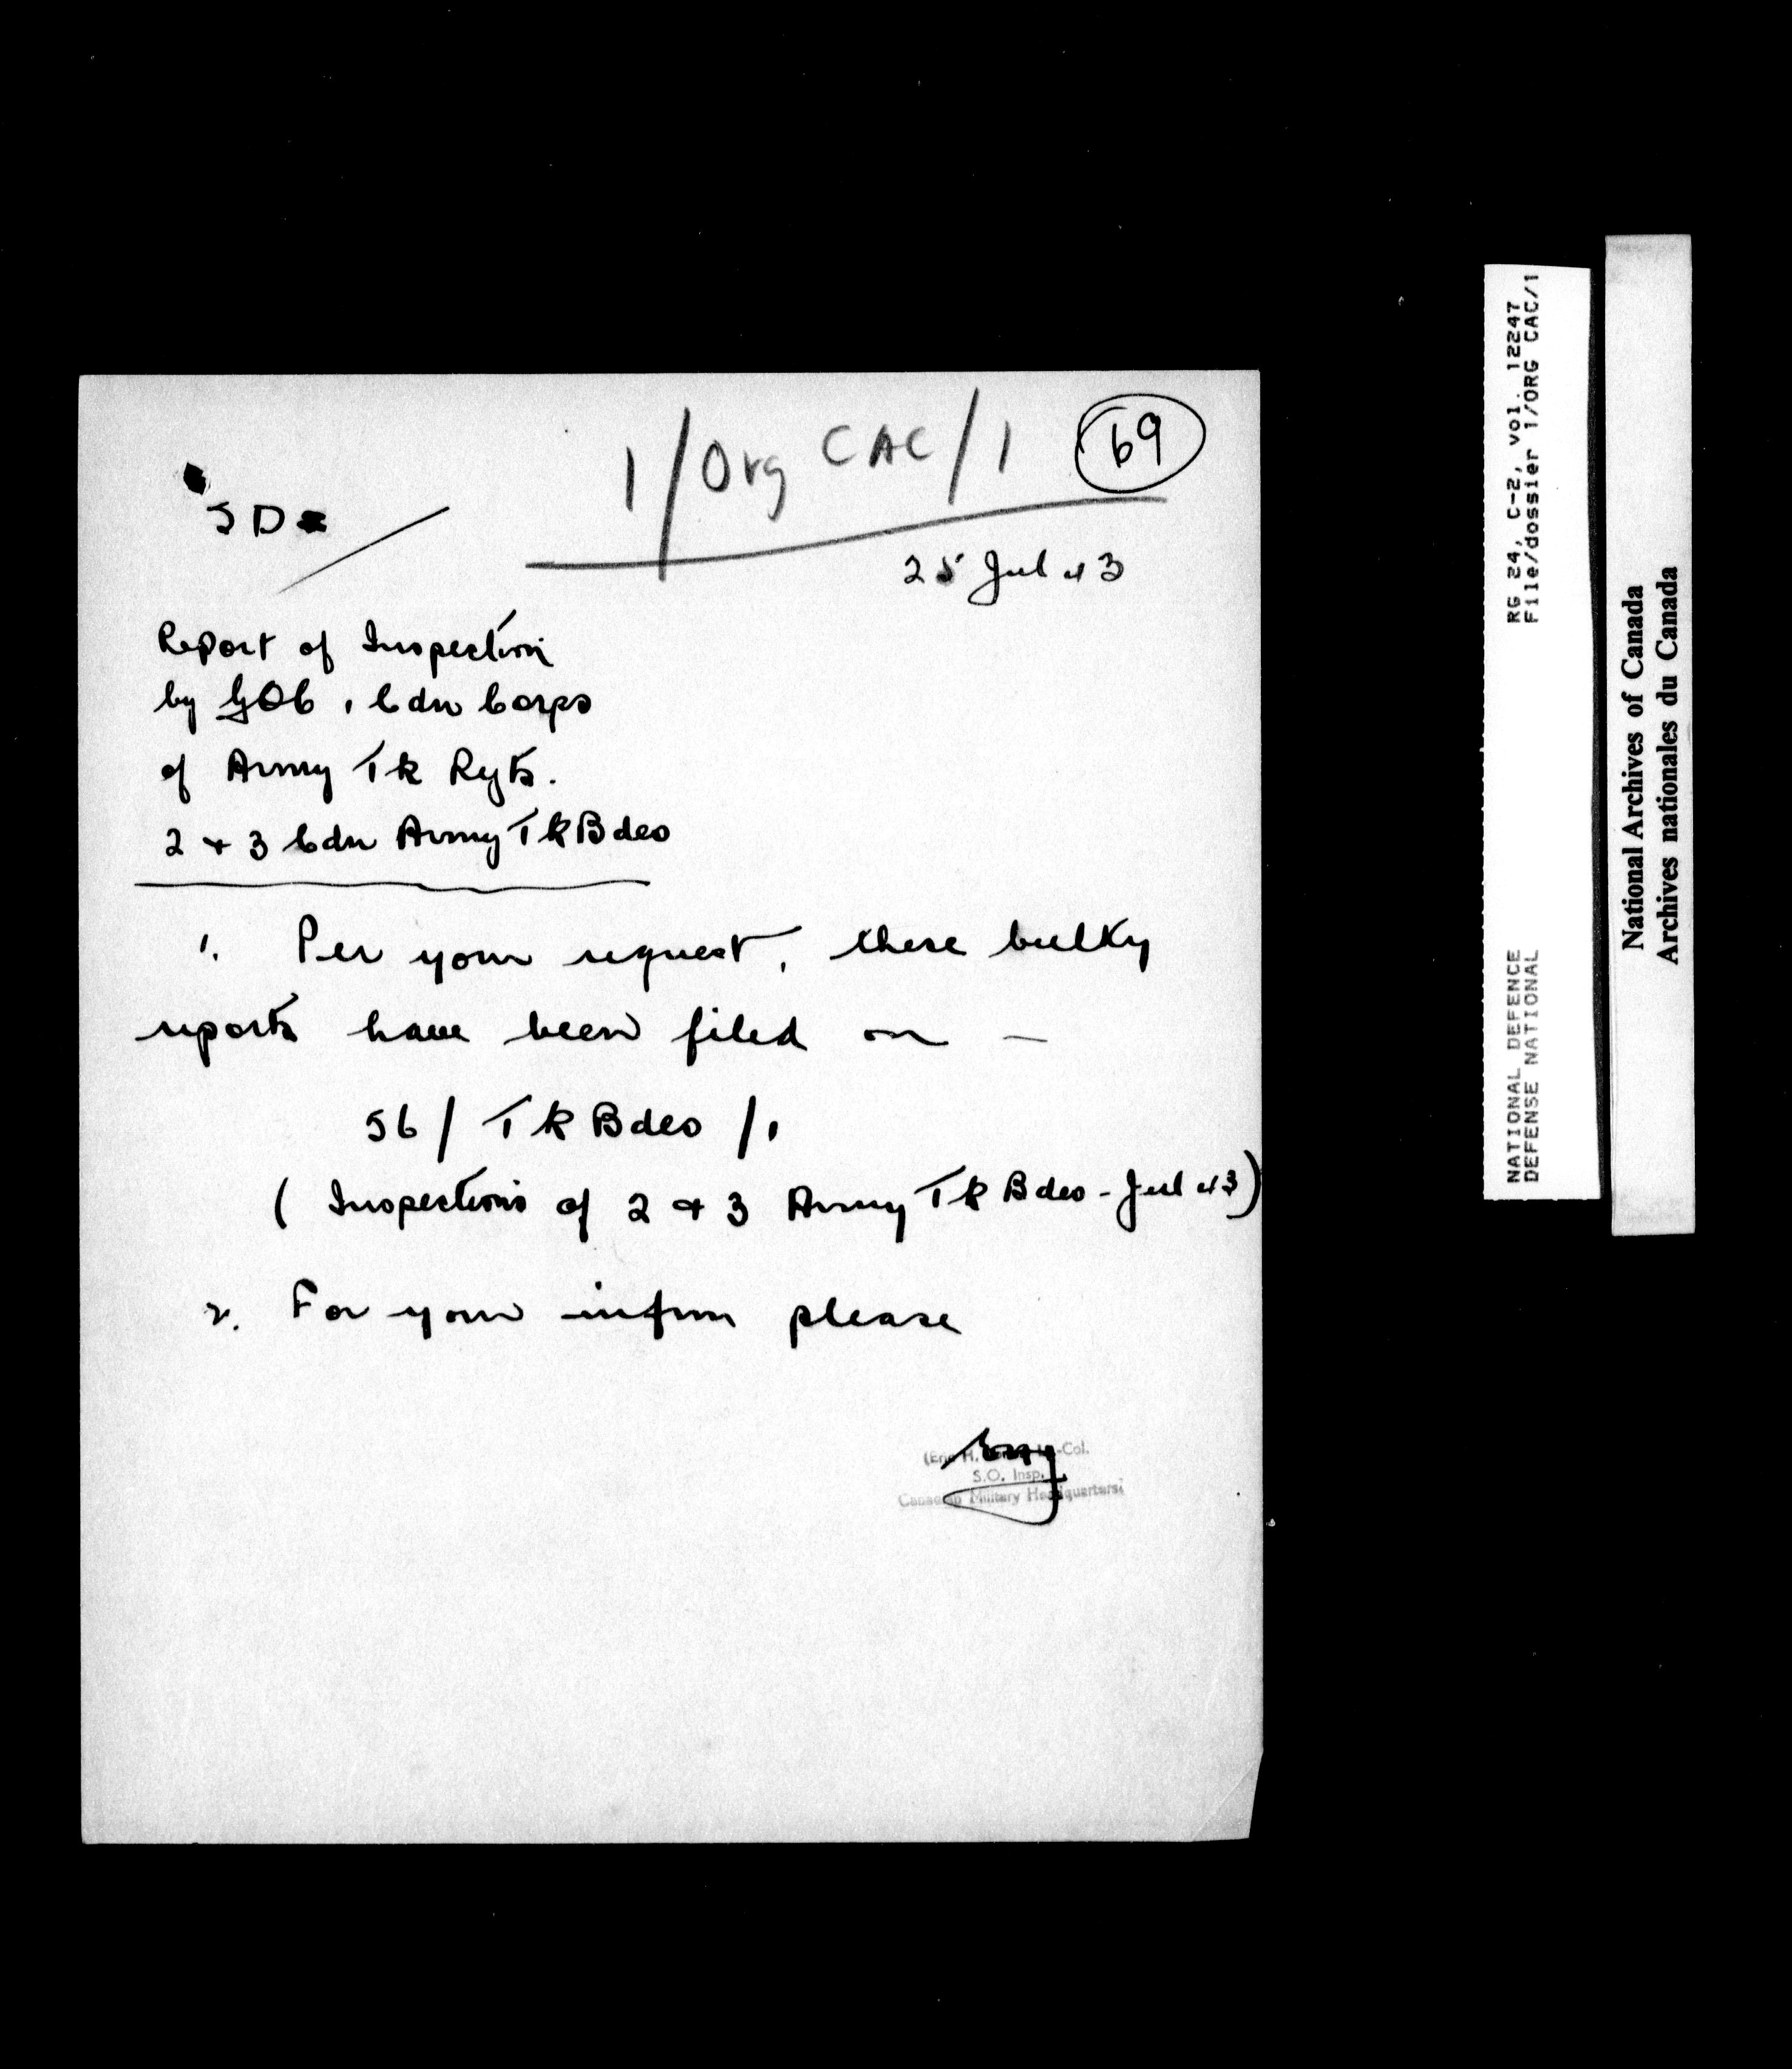 1/Org CAC/1 69
SD
25 Jul 43
Report of Inspection
by GOC 1 Cdn Corps
of Army Tk Regts.
2 + 3 Cdn Army Tk Bdes
1. Per your request, these bulky
reports have been filed on —
56/Tk Bdes/1
(Inspections of 2 + 3 Army Tk Bdes - Jul 43)
2. For your infm please
H. -Col.
S.O. Insp.
Canadian Military Headquarters
RG 24, C-2, vol. 12247
File/dossier 1/ORG CAC/1
NATIONAL DEFENCE
DEFENSE NATIONAL
National Archives of Canada
Archives nationales du Canada